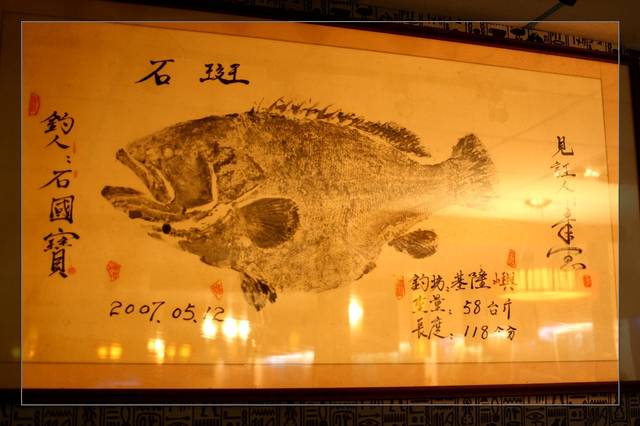 石斑
釣人：石國寶
2007.05.12
見証人
釣場：基隆嶼
重量：58台斤
長度：118公分